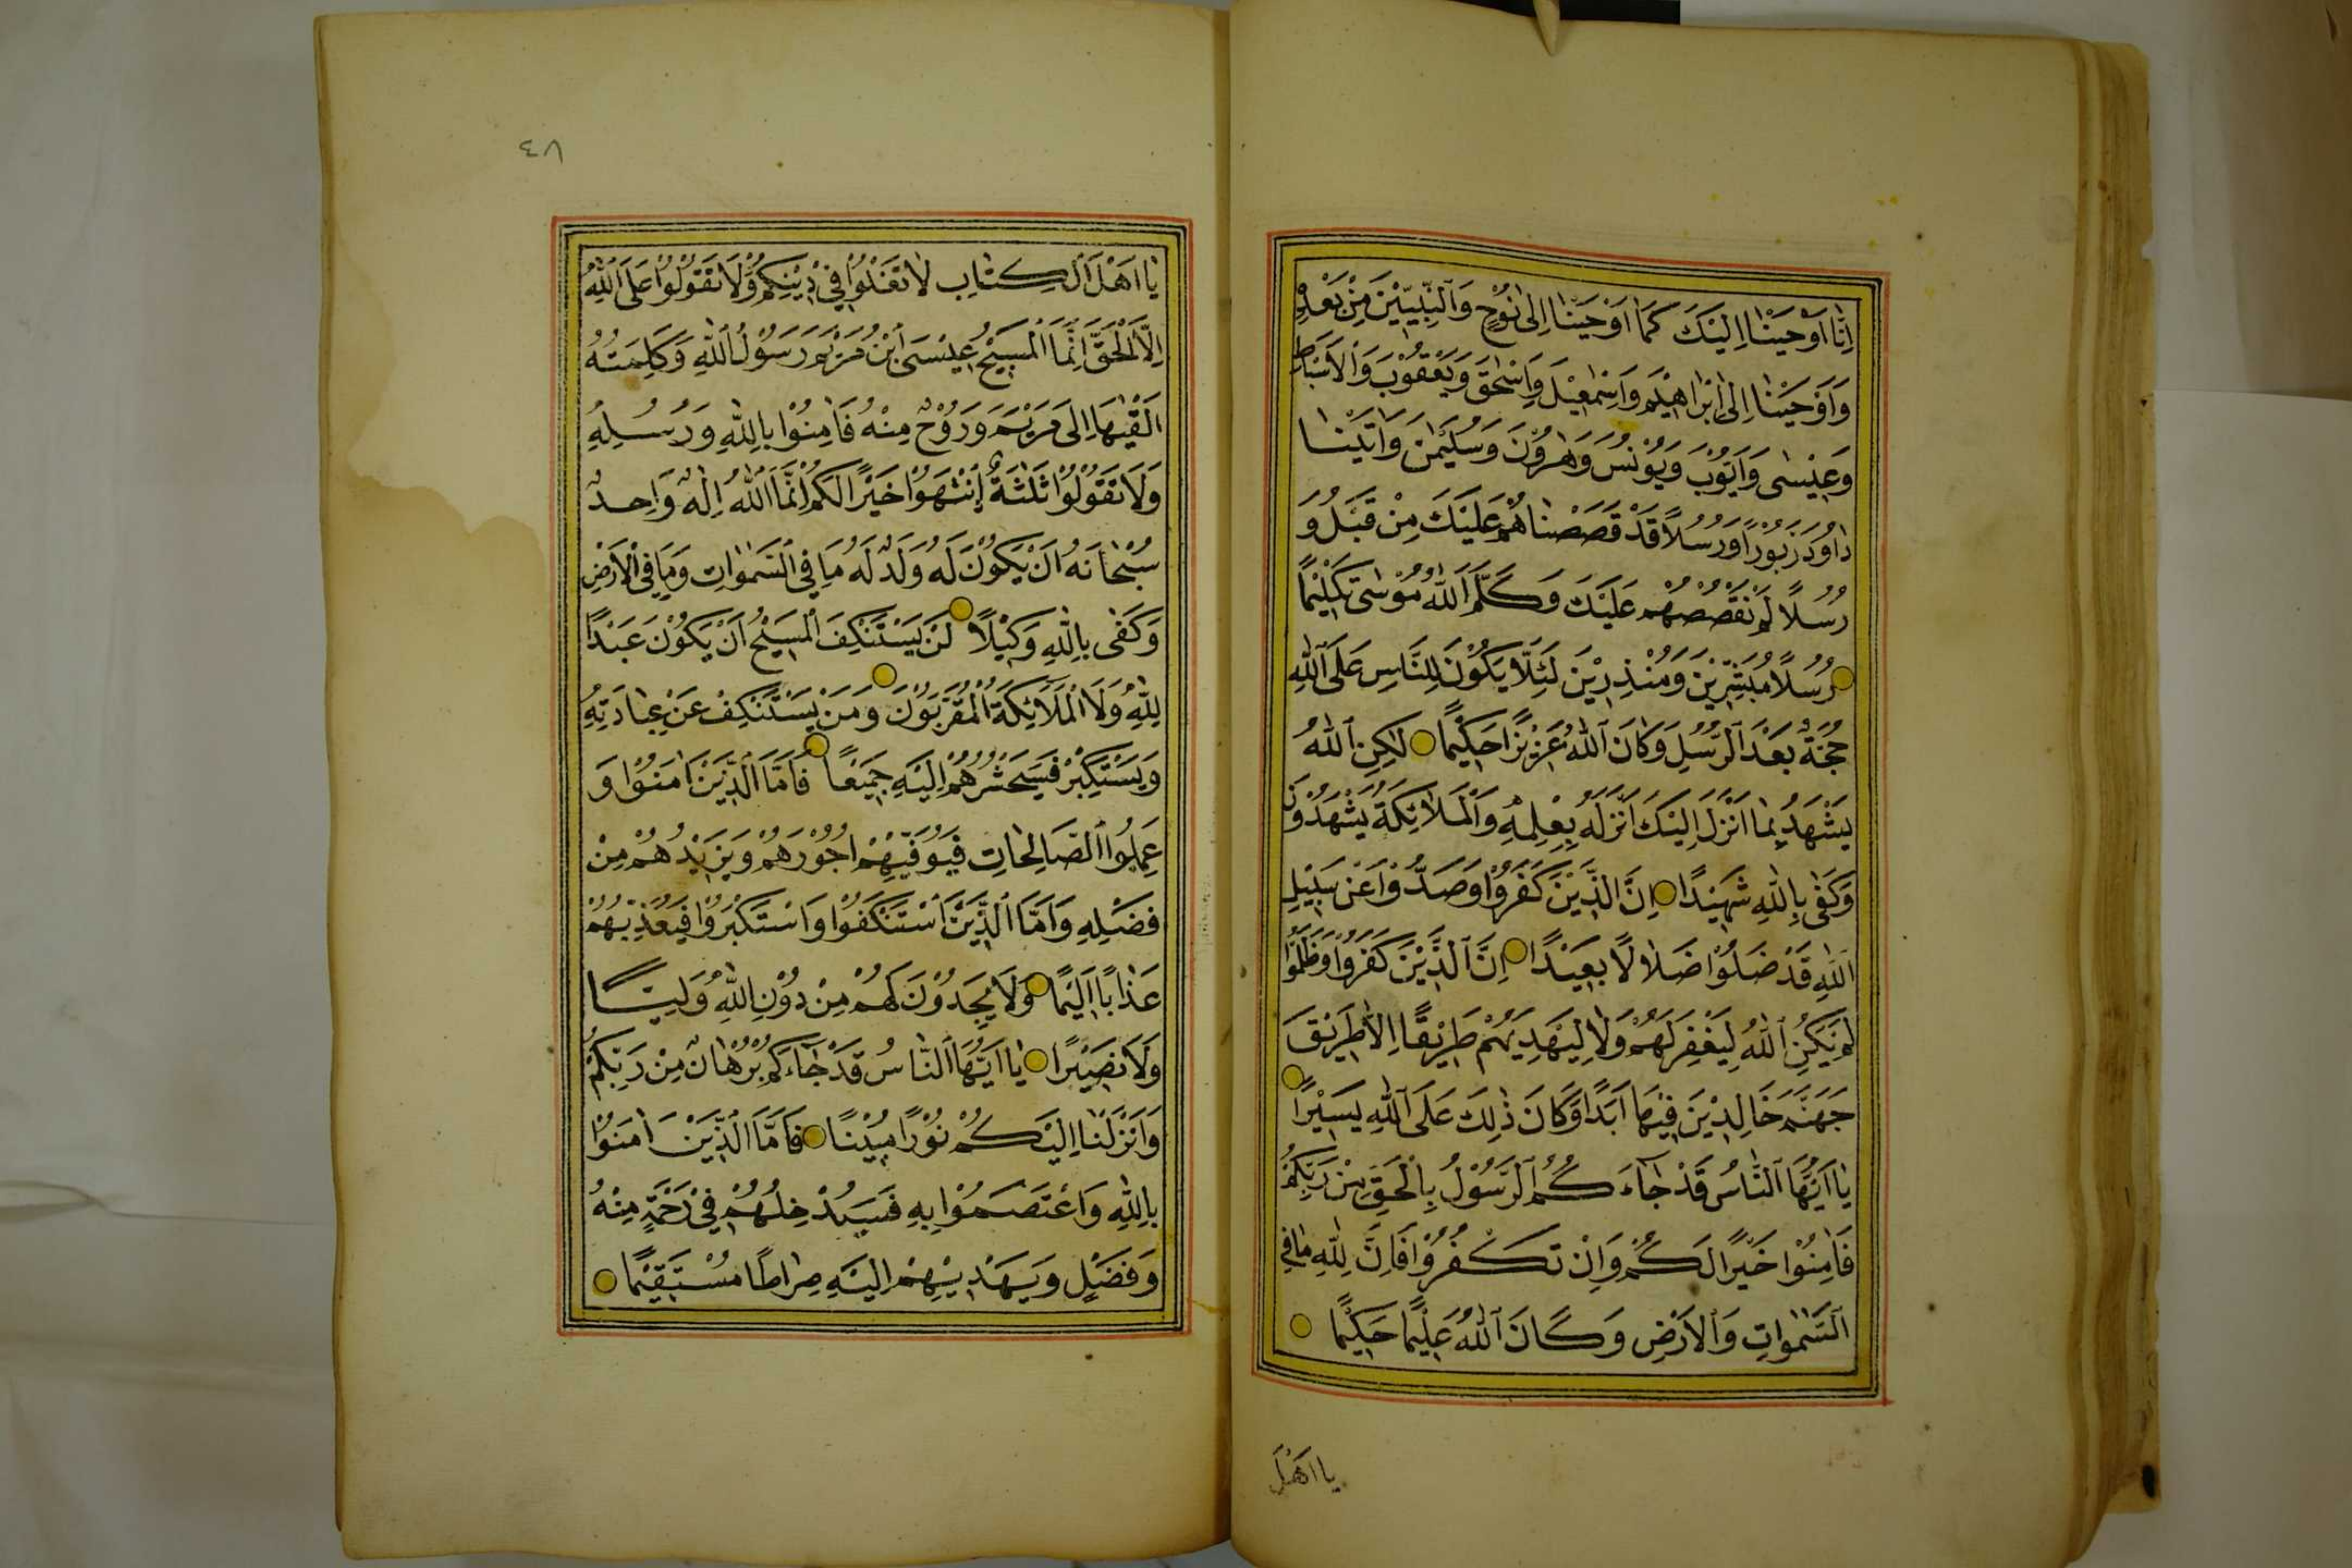 اِنَّا اَوْحَيْنَا اِلَيْكَ كَمَا اَوْحَيْنَا اِلٰى نُوْحٍ وَالنَّبِيّٖيْنَ مِنْ بَعْدِهٖ
وَاَوْحَيْنَا اِلٰى اِبْرَاهِيْمَ وَاِسْمٰعِيْلَ وَاِسْحٰقَ وَيَعْقُوْبَ وَالْاَسْبَاطِ
وَعِيْسٰى وَاَيُّوْبَ وَيُوْنُسَ وَهٰرُوْنَ وَسُلَيْمٰنَ وَاٰتَيْنَا
دَاوُدَ زَبُوْرًا وَرُسُلًا قَدْ قَصَصْنَاهُمْ عَلَيْكَ مِنْ قَبْلُ وَ
رُسُلًا لَمْ نَقْصُصْهُمْ عَلَيْكَ وَكَلَّمَ اللّٰهُ مُوْسٰى تَكْلِيْمًا
رُسُلًا مُبَشِّرِيْنَ وَمُنْذِرِيْنَ لِئَلَّا يَكُوْنَ لِلنَّاسِ عَلَى اللّٰهِ
حُجَّةٌ بَعْدَ الرُّسُلِ وَكَانَ اللّٰهُ عَزِيْزًا حَكِيْمًا لٰكِنِ اللّٰهُ
يَشْهَدُ بِمَا اَنْزَلَ اِلَيْكَ اَنْزَلَهُ بِعِلْمِهٖ وَالْمَلَائِكَةُ يَشْهَدُوْنَ
وَكَفٰى بِاللّٰهِ شَهِيْدًا اِنَّ الَّذِيْنَ كَفَرُوْا وَصَدُّوْا عَنْ سَبِيْلِ
اللّٰهِ قَدْ ضَلُّوْا ضَلَالًا بَعِيْدًا اِنَّ الَّذِيْنَ كَفَرُوْا وَظَلَمُوْا
لَمْ يَكُنِ اللّٰهُ لِيَغْفِرَ لَهُمْ وَلَا لِيَهْدِيَهُمْ طَرِيْقًا اِلَّا طَرِيْقَ
جَهَنَّمَ خَالِدِيْنَ فِيْهَا اَبَدًا وَكَانَ ذٰلِكَ عَلَى اللّٰهِ يَسِيْرًا
يَا اَيُّهَا النَّاسُ قَدْ جَاءَكُمُ الرَّسُوْلُ بِالْحَقِّ مِنْ رَبِّكُمْ
فَاٰمِنُوْا خَيْرًا لَكُمْ وَاِنْ تَكْفُرُوْا فَاِنَّ لِلّٰهِ مَا فِي
السَّمٰوَاتِ وَالْاَرْضِ وَكَانَ اللّٰهُ عَلِيْمًا حَكِيْمًا
يا اَهْلَ
٤٨
يَا اَهْلَ الْكِتَابِ لَا تَغْلُوْا فِيْ دِيْنِكُمْ وَلَا تَقُوْلُوْا عَلَى اللّٰهِ
اِلَّا الْحَقَّ اِنَّمَا الْمَسِيْحُ عِيْسَى ابْنُ مَرْيَمَ رَسُوْلُ اللّٰهِ وَكَلِمَتُهُ
اَلْقٰيهَا اِلٰى مَرْيَمَ وَرُوْحٌ مِنْهُ فَاٰمِنُوْا بِاللّٰهِ وَرُسُلِهِ
وَلَا تَقُوْلُوْا ثَلٰثَةٌ اِنْتَهُوْا خَيْرًا لَكُمْ اِنَّمَا اللّٰهُ اِلٰهٌ وَاحِدٌ
سُبْحَانَهُ اَنْ يَكُوْنَ لَهُ وَلَدٌ لَهُ مَا فِي السَّمٰوَاتِ وَمَا فِي الْاَرْضِ
وَكَفٰى بِاللّٰهِ وَكِيْلًا لَنْ يَسْتَنْكِفَ الْمَسِيْحُ اَنْ يَكُوْنَ عَبْدًا
لِلّٰهِ وَلَا الْمَلَائِكَةُ الْمُقَرَّبُوْنَ وَمَنْ يَسْتَنْكِفْ عَنْ عِبَادَتِهِ
وَيَسْتَكْبِرْ فَسَيَحْشُرُهُمْ اِلَيْهِ جَمِيْعًا فَاَمَّا الَّذِيْنَ اٰمَنُوْا وَ
عَمِلُوا الصَّالِحَاتِ فَيُوَفِّيْهِمْ اُجُوْرَهُمْ وَيَزِيْدُهُمْ مِنْ
فَضْلِهِ وَاَمَّا الَّذِيْنَ اسْتَنْكَفُوْا وَاسْتَكْبَرُوْا فَيُعَذِّبُهُمْ
عَذَابًا اَلِيْمًا وَلَا يَجِدُوْنَ لَهُمْ مِنْ دُوْنِ اللّٰهِ وَلِيًّا
وَلَا نَصِيْرًا يَا اَيُّهَا النَّاسُ قَدْ جَاءَكُمْ بُرْهَانٌ مِنْ رَبِّكُمْ
وَاَنْزَلْنَا اِلَيْكُمْ نُوْرًا مُبِيْنًا فَاَمَّا الَّذِيْنَ اٰمَنُوْا
بِاللّٰهِ وَاعْتَصَمُوْا بِهِ فَسَيُدْخِلُهُمْ فِيْ رَحْمَةٍ مِنْهُ
وَفَضْلٍ وَيَهْدِيْهِمْ اِلَيْهِ صِرَاطًا مُسْتَقِيْمًا